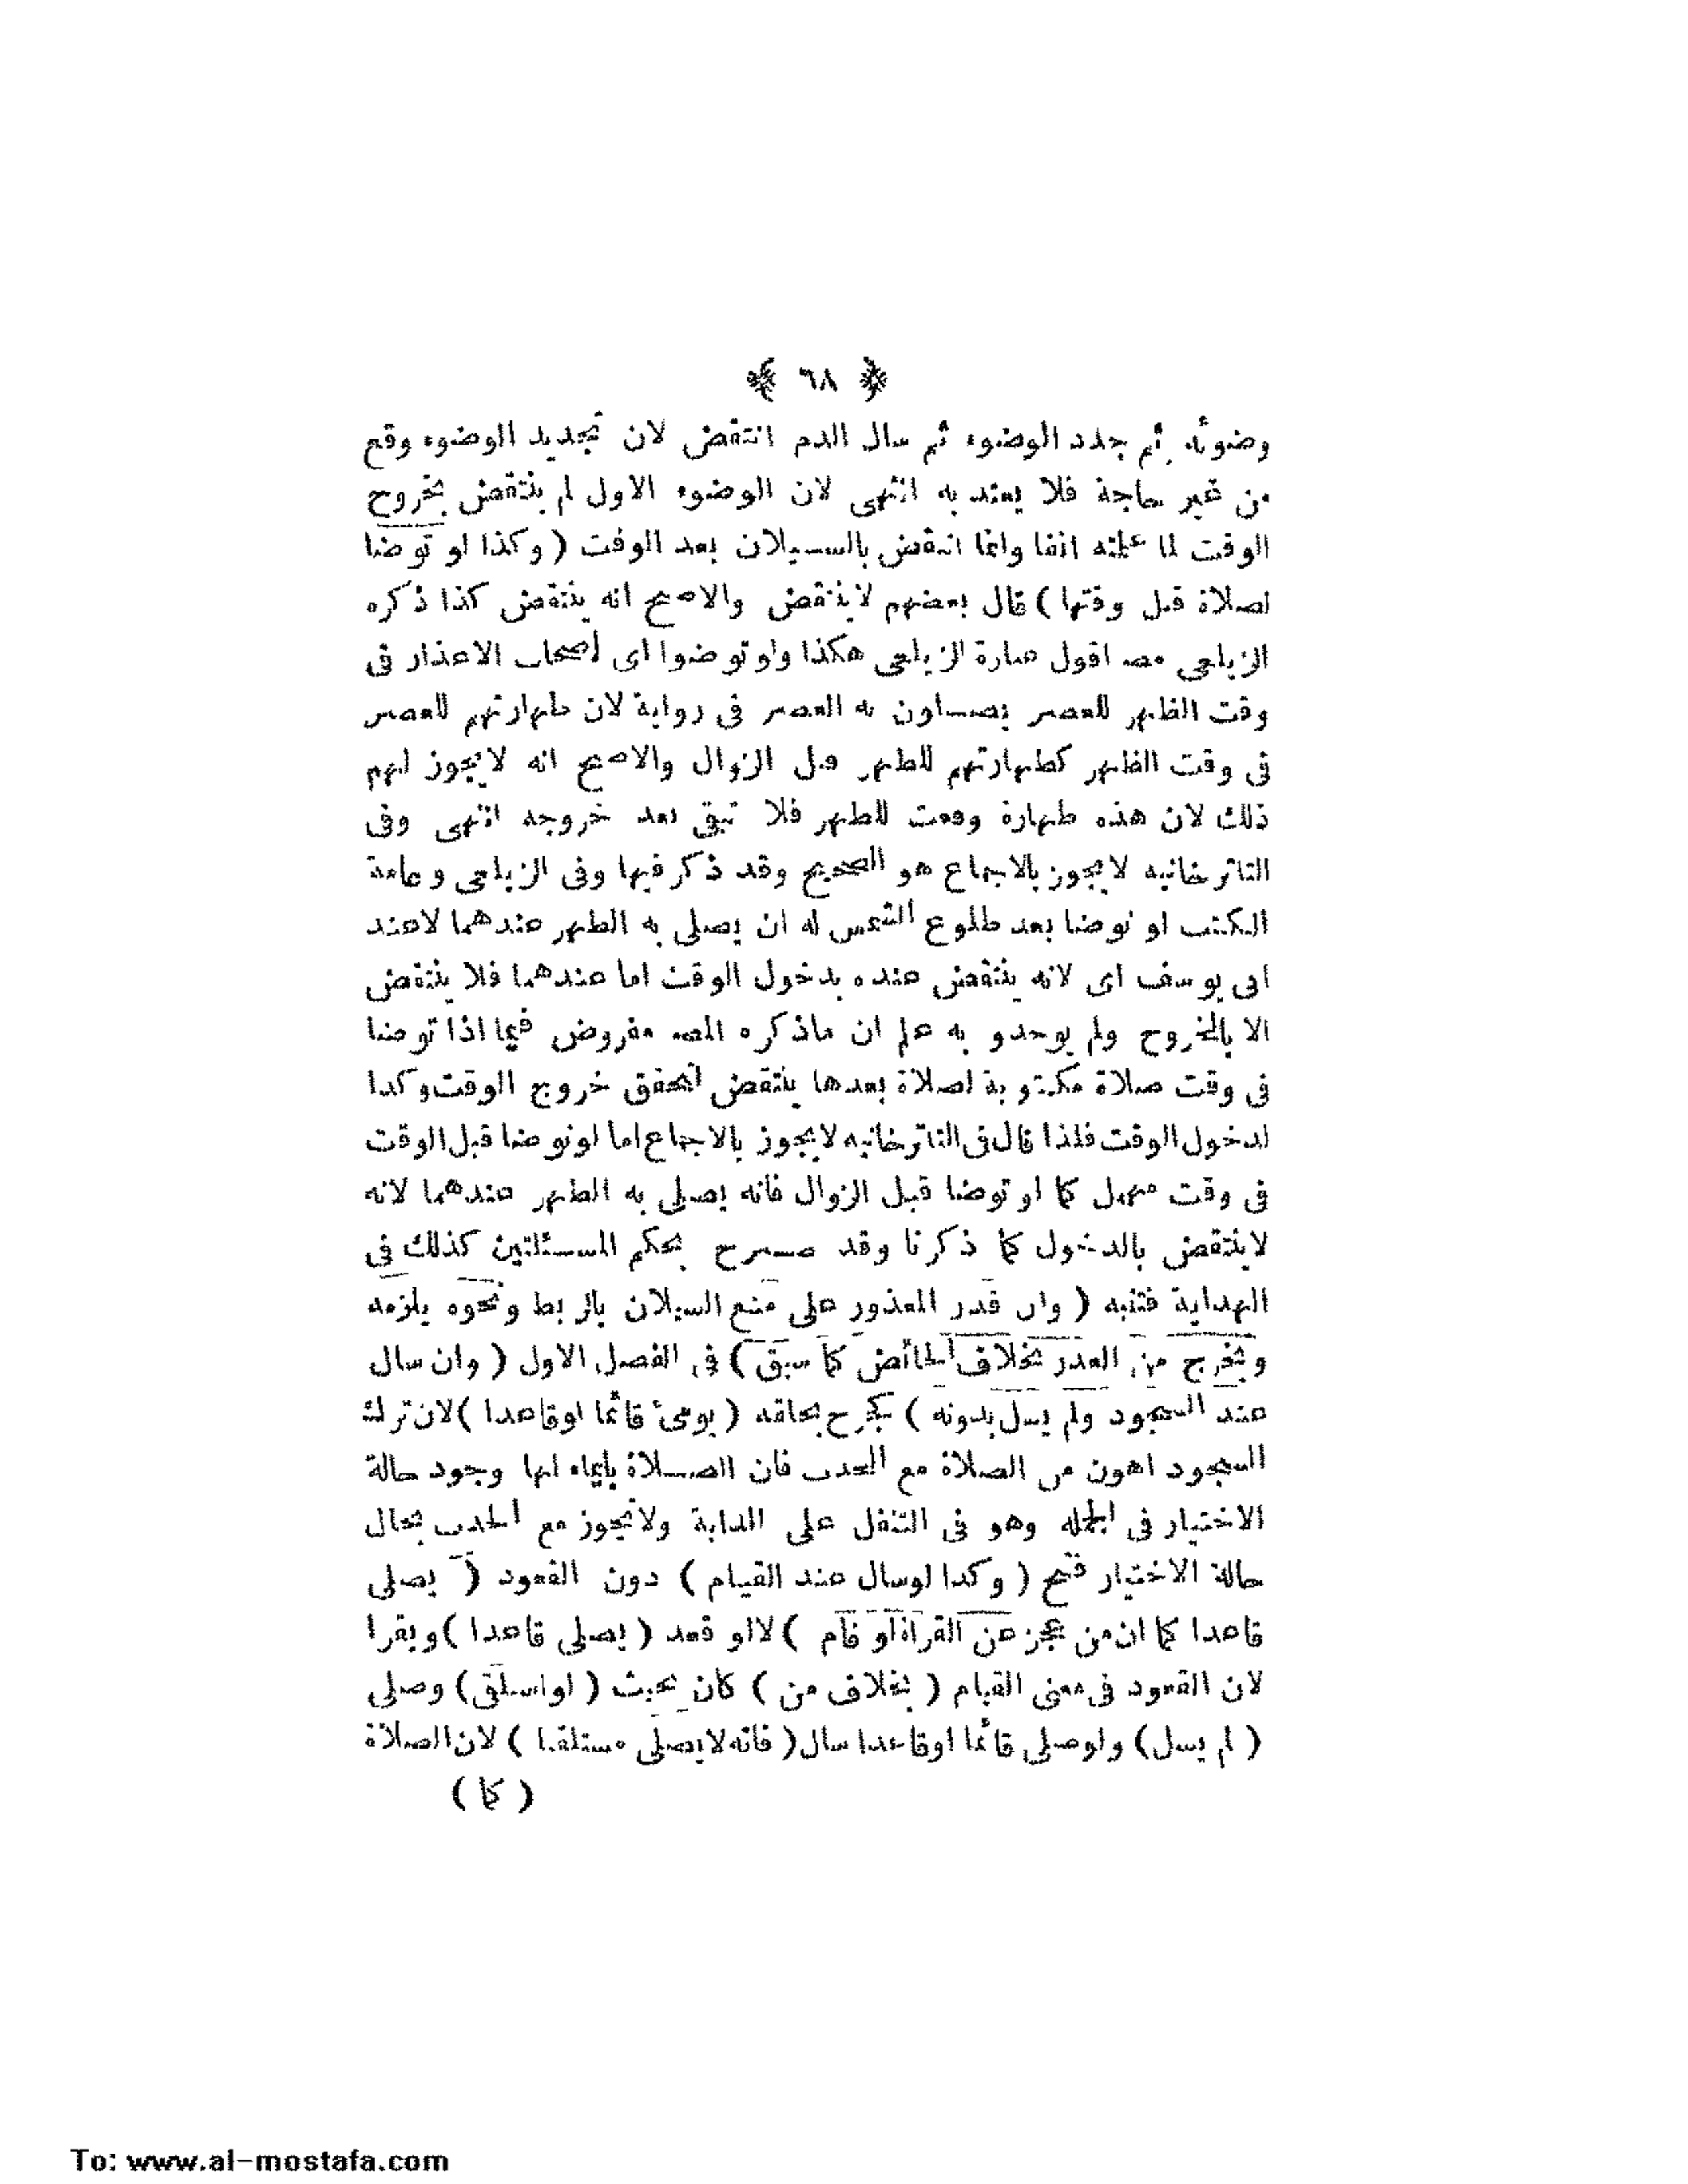 ﴿ ٦٨ ﴾
وضوئه ثم جدد الوضوء ثم سال الدم انتقض لان تجديد الوضوء وقع
من غير حاجة فلا يعتد به انتهى لان الوضوء الاول لم ينتقض بخروج
الوقت لما علمته انفا وانما انتقض بالسيلان بعد الوقت ( وكذا لو توضا
لصلاة قبل وقتها ) قال بعضهم لا ينتقض والاصح انه ينتقض كذا ذكره
الزيلعى مصـ اقول عبارة الزيلعى هكذا ولو توضوا اى اصحاب الاعذار فى
وقت الظهر للعصر يصلون به العصر فى رواية لان طهارتهم للعصر
فى وقت الظهر كطهارتهم للظهر قبل الزوال والاصح انه لا يجوز لهم
ذلك لان هذه طهارة وقعت للظهر فلا تبقى بعد خروجه انتهى وفى
التاترخانيه لا يجوز بالاجماع هو الصحيح وقد ذكر فيها وفى الزيلعى وعامة
الكتب لو توضا بعد طلوع الشمس له ان يصلى به الظهر عندهما لا عند
ابى يوسف اى لانه ينتقض عنده بدخول الوقت اما عندهما فلا ينتقض
الا بالخروج ولم يوجد وبه علم ان ماذكره المصـ مفروض فيما اذا توضا
فى وقت صلاة مكتوبة لصلاة بعدها ينتقض لتحقق خروج الوقت وكذا
لدخول الوقت فلذا قال فى التاترخانيه لا يجوز بالاجماع اما لو توضا قبل الوقت
فى وقت مهمل كما لو توضا قبل الزوال فانه يصلى به الظهر عندهما لانه
لا ينتقض بالدخول كما ذكرنا وقد صرح بحكم المسئلتين كذلك فى
الهداية فتنبه ( وان قدر المعذور على منع السيلان بالربط ونحوه يلزمه
ويخرج من العذر بخلاف الحائض كما سبق ) فى الفصل الاول ( وان سال
عند السجود ولم يسل بدونه ) كجرح بحلقه ( يومئ قائما او قاعدا ) لان ترك
السجود اهون من الصلاة مع الحدث فان الصلاة بايماء لها وجود حالة
الاختيار فى الجمله وهو فى التنفل على الدابة ولا تجوز مع الحدث بحال
حالة الاختيار فتح ( وكذا لو سال عند القيام ) دون القعود ( يصلى
قاعدا كما ان من عجز عن القراة لو قام ) لا لو قعد ( يصلى قاعدا ) ويقرا
لان القعود فى معنى القيام ( بخلاف من ) كان بحيث ( لو استلقى ) وصلى
( لم يسل ) ولو صلى قائما او قاعدا سال ( فانه لا يصلى مستلقيا ) لان الصلاة
( كما )
To: www.al-mostafa.com